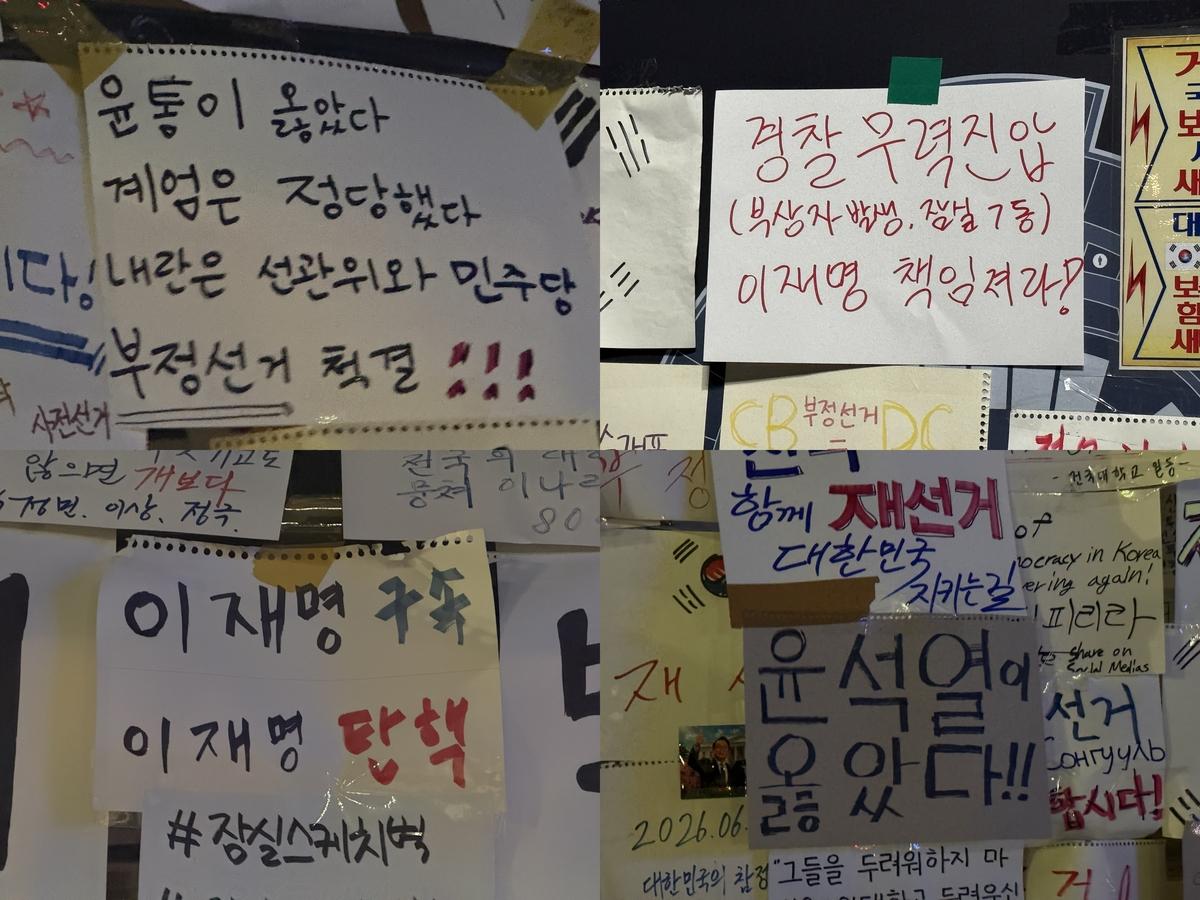 윤통이 옳았다
계엄은 정당했다
내란은 선관위와 민주당
부정선거 척결 !!!
사전선거
다!
경찰 무력진압
(부상자 발생. 잠실 7동)
이재명 책임져라!
CB 부정선거 = DC
대
않으면 개보다
정면. 이상. 정국.
전국의 대
뭉쳐 이나라
80
이재명 구속
이재명 탄핵
#잠실스케치북
함께 재선거
대한민국
지키는길
윤석열이
옳았다!!
재
2026.06.
대한민국의 참정
"그들을 두려워하지 마
- 건국대학교 일동 -
of
ocracy in Korea
ering again!
피리라
share on
Social Medias
선거
Сонгууль
합시다!